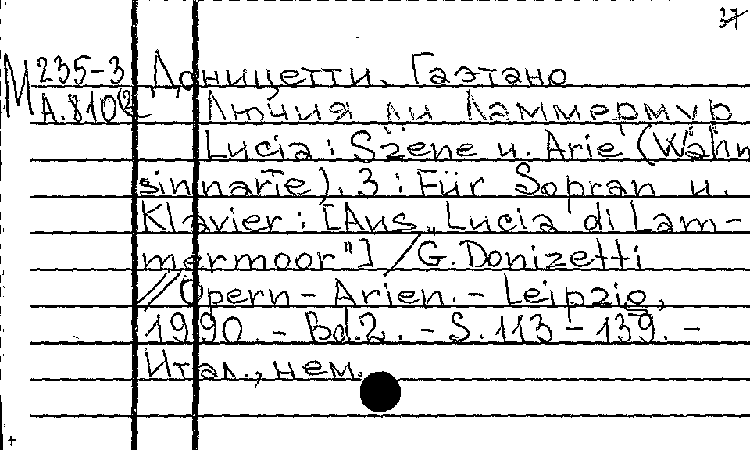 37
М 235-3 Доницетти. Гаэтано
А.810(2 Лючия ди Ламмермур
Lucia : Szene u. Arie (Wahn
sinnarie). 3 : Für Sopran u.
Klavier : [Aus „Lucia di Lam-
mermoor"] / G. Donizetti
// Opern - Arien. - Leipzig,
1990. - Bd.2. - S. 113 - 139. -
Итал., нем.